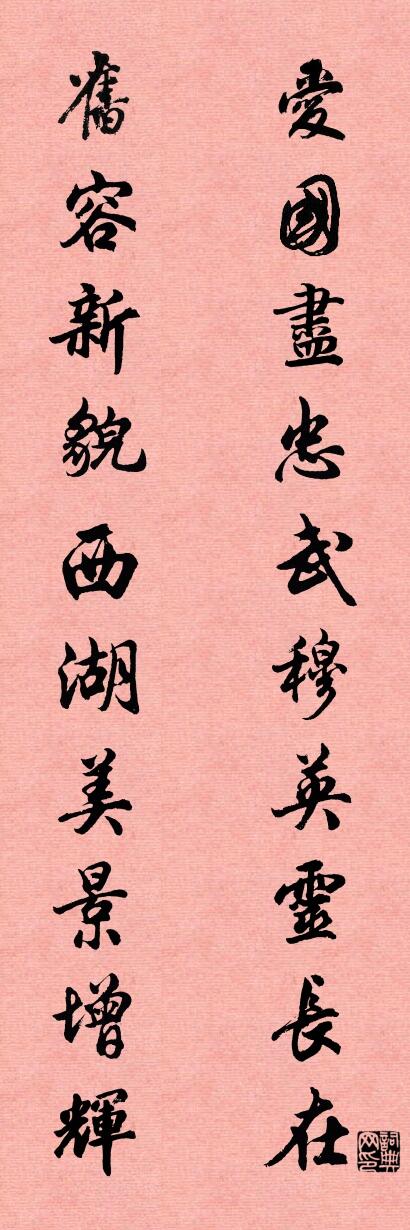 愛國盡忠武穆英靈長在
舊容新貌西湖美景增輝
詞典網印